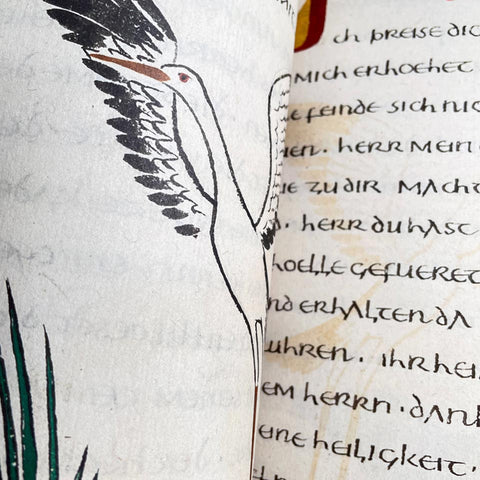 CH PREISE DIC
MICH ERHOEHET
E FEINDE SICH NIC
EN. HERR MEIN
IE ZU DIR MACHT
N. HERR DU HAST
HOELLE GEFUERET
ND ERHALTEN DA
UHREN. IHR HEI
EM HERRN. DANK
EINE HEILIGKEIT.